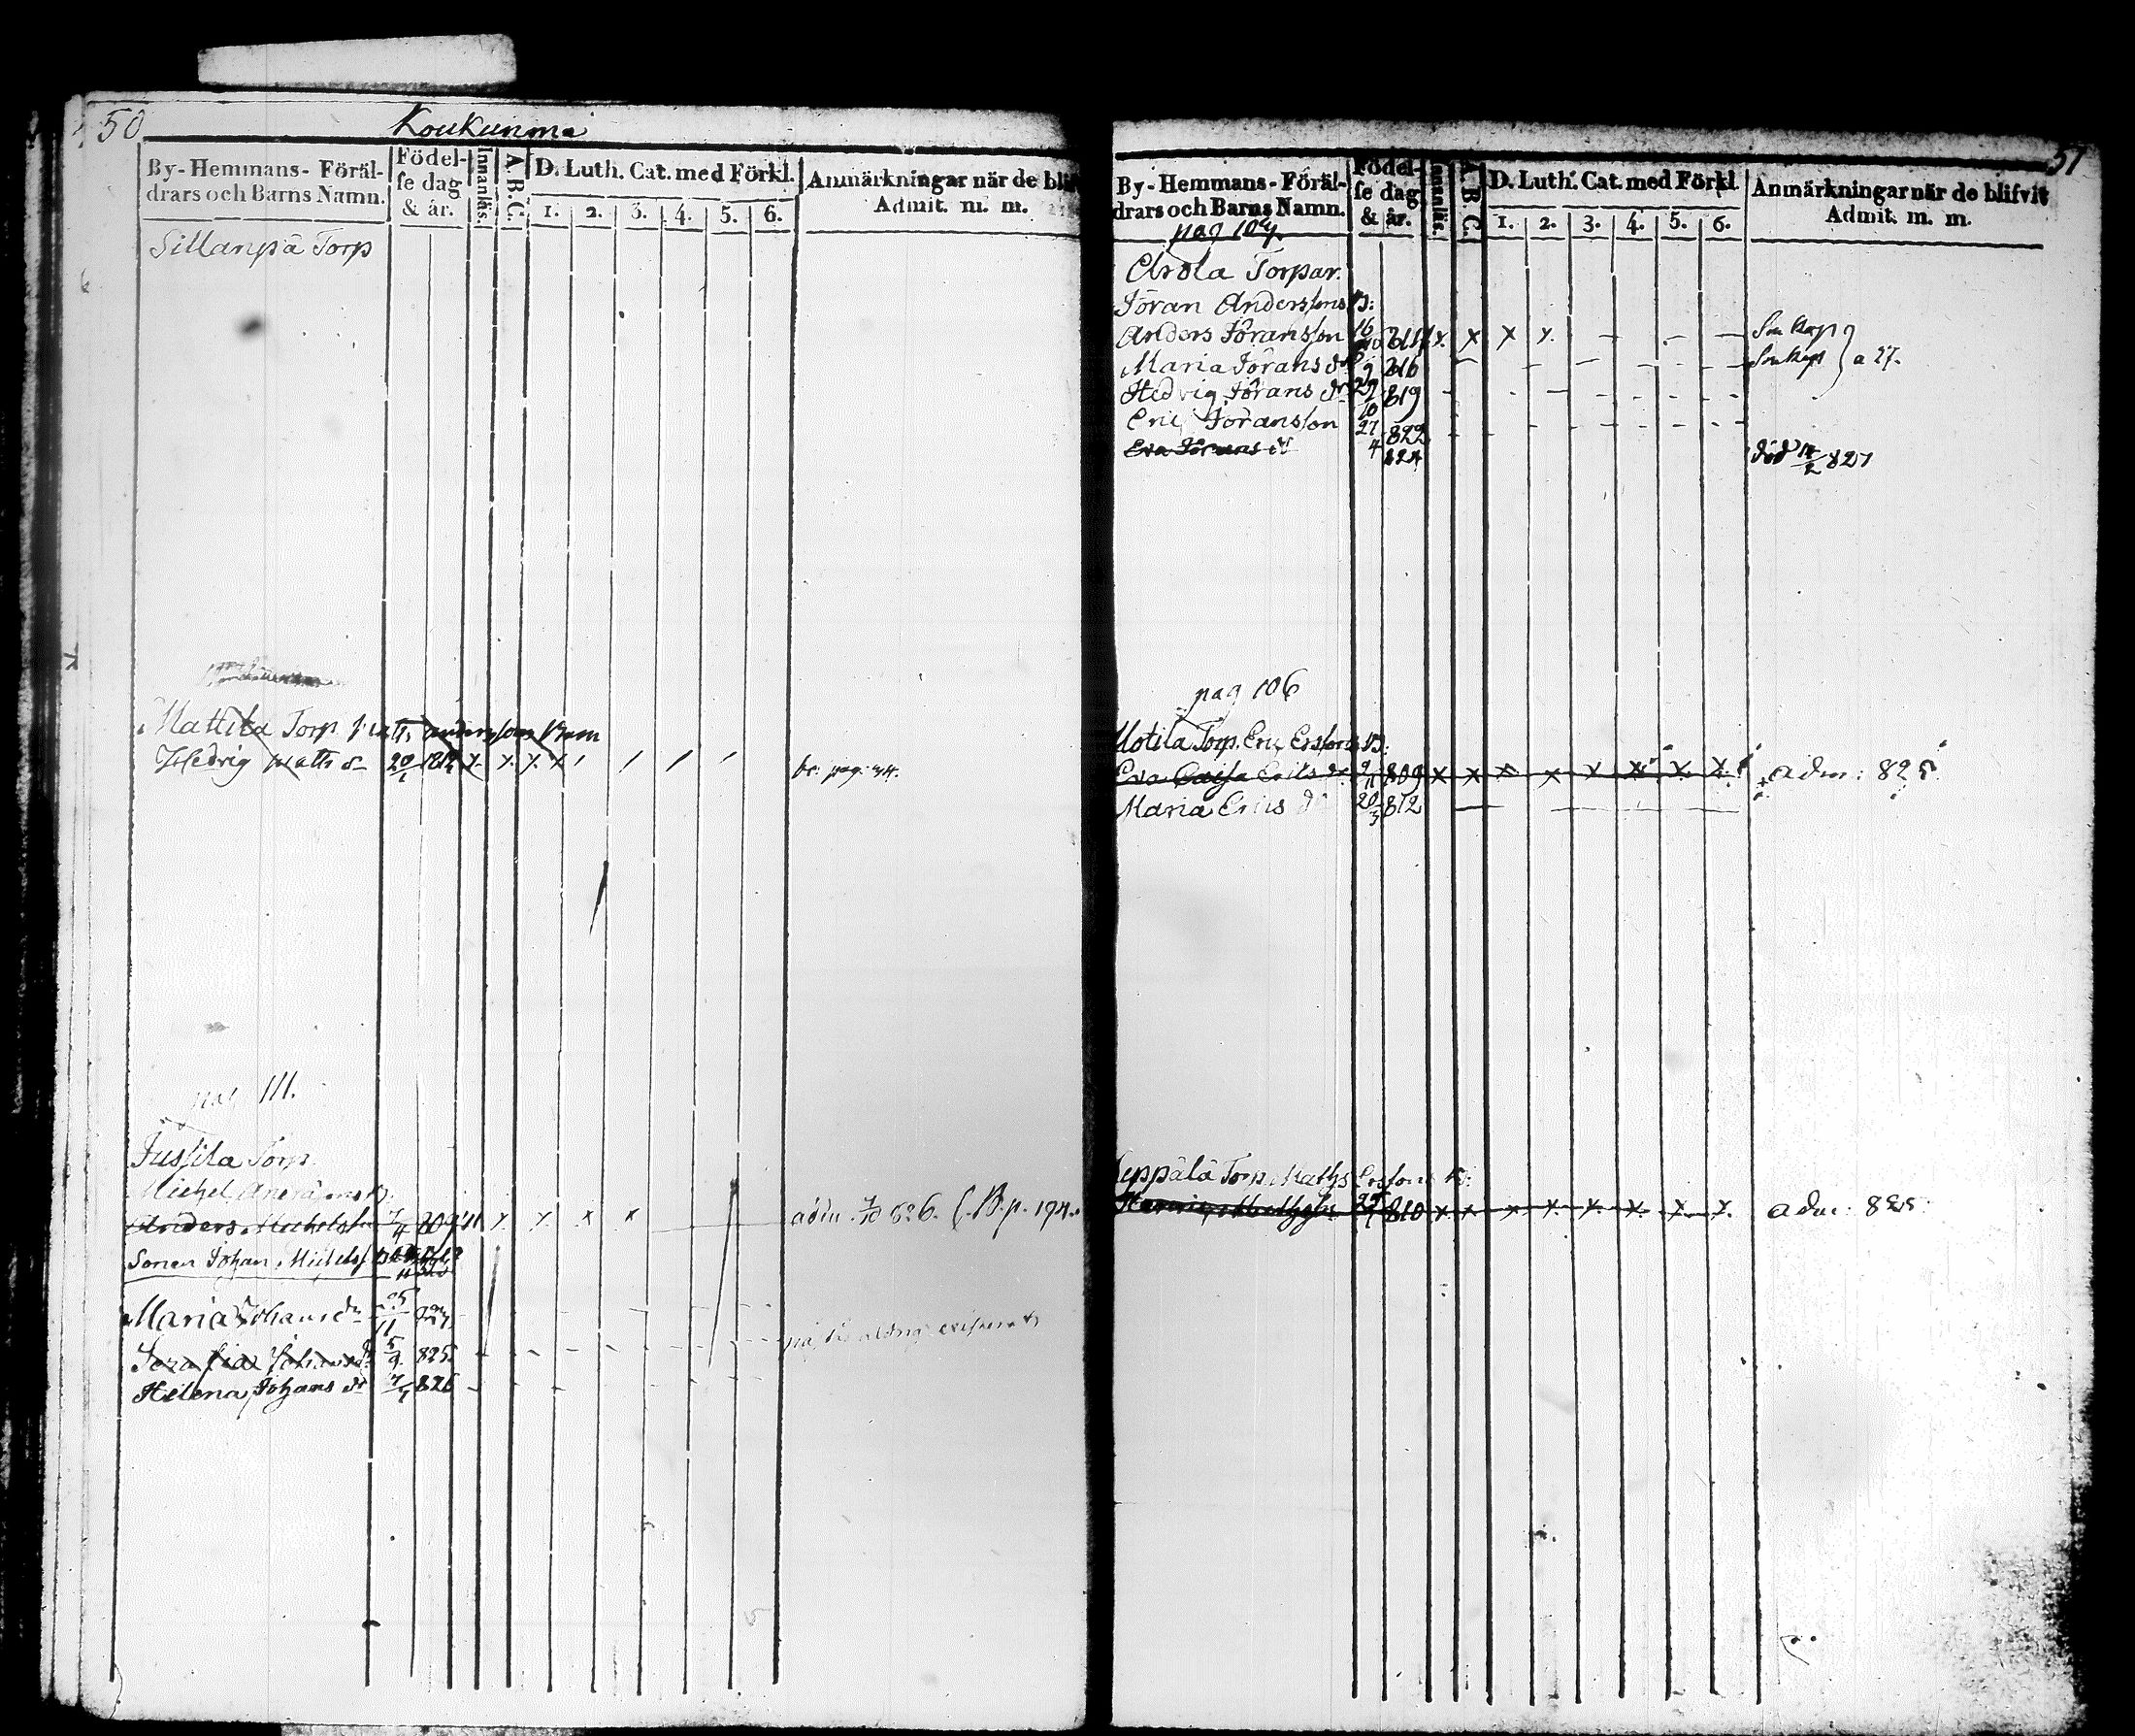 50
Koukunma
By-Hemmans-Föräl-
drars och Barns Namn.
Födel-
se dag
& år.
Innanläs.
A. B. C.
D. Luth. Cat. med Förkl.
1. 2. 3. 4. 5. 6.
Anmärkningar när de blif
Admit. m. m.
Sillanpä Torp
Mattila Torp Matts Anderssons Barn
Hedvig Matts dr 20/1 1812 x. x. x. x / / / / bc. pag. 34.
pag 111.
Jussila Torp
Michel Anders
Anders Michelss 7/4 809 x. x. x x adm. 826. C.B.p. 194.
Sonen Johan Michelss
Maria Johans dr 25/11
Johans dr 5/9 825.
Helena Johans dr 826
57
By-Hemmans-Föräl-
drars och Barns Namn.
Födel-
se dag
& år.
Innanläs.
A. B. C.
D. Luth. Cat. med Förkl
1. 2. 3. 4. 5. 6.
Anmärkningar när de blifvit
Admit. m. m.
pag 104.
Arola Torpar.
Jöran Anderssons B:
Anders Jöransson 16/10 811 x. x x x. — — —
Maria Jörans dr 9 816 } a 27.
Hedvig Jörans dr 29/10 819
Eric Jöransson 27/4 822
Eva Jörans dr 824 död 14/2 827
pag 106
Motila Torp. Eric Erssons B:
Eva Caisa Erics dr 9/11 809 x x x x x x x x. adm: 825.
Maria Erics dr 20/3 812
Seppälä Torp. Maths Erssons B:
810 x. x. x x. x. x. x. x. adm: 825.